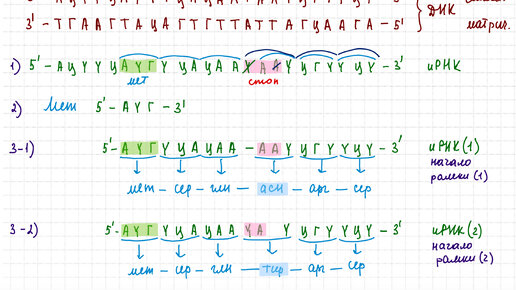 ДНК
3'- ТГААГТАЦАГТГТТАТТАГЦААГА - 5'
матрич.
1) 5'- АЦУУЦАУГУЦАЦААУААУЦГУУЦУ - 3' иРНК
мет стоп
2) Мет 5'- АУГ - 3'
3-1) 5'- АУГУЦАЦАА - ААУЦГУУЦУ - 3' иРНК(1)
начало
мет - сер - глн - асн - арг - сер
3-2) 5'- АУГУЦАЦАА УА УЦГУУЦУ - 3' иРНК(2)
начало
мет - сер - глн - тир - арг - сер